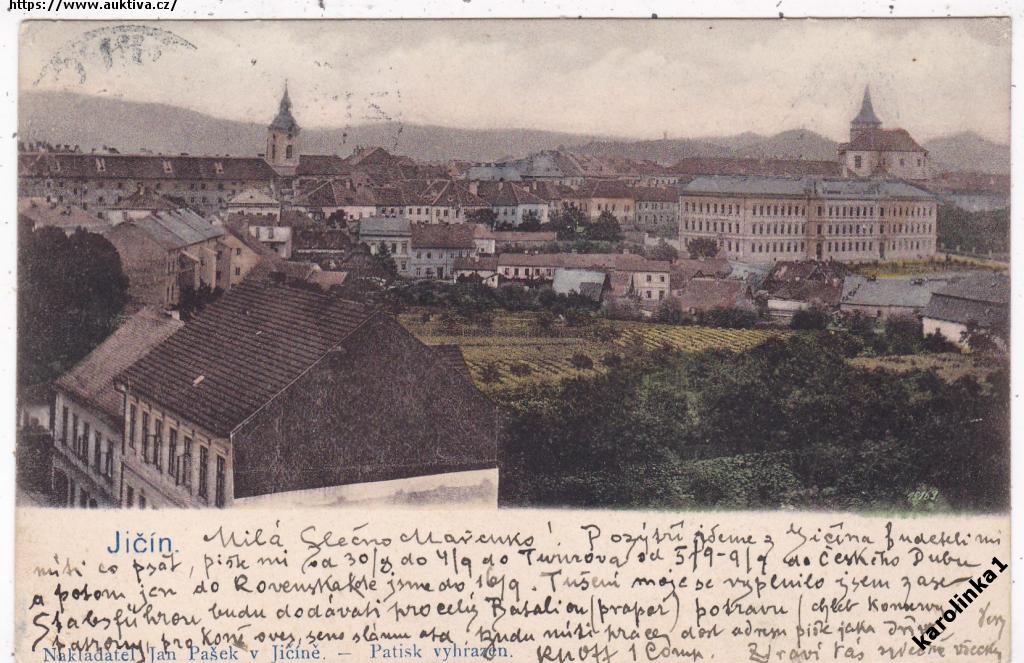 https://www.auktiva.cz/
15163
Jičín.
Milá Slečno Mařenko! Pozýtří jdeme z Jičína budeteli mi
míti co psát, pište mi od 30/8 do 4/9 do Turnova od 5/9-9/9 do Českého Dubu
a potom jen do Rovenska kde jsme do 16/9. Tušení moje se vyplnilo jsem zase
budu dodávati pro celý Batalion (prapor) potravu (chléb
pro koně oves, seno slámu atd. budu míti práce dost adresu pište jako
Nakladatel Jan Pašek v Jičíně. — Patisk vyhrazen.
1 Comp. Zdraví Vás srdečně všecky
karolinka1